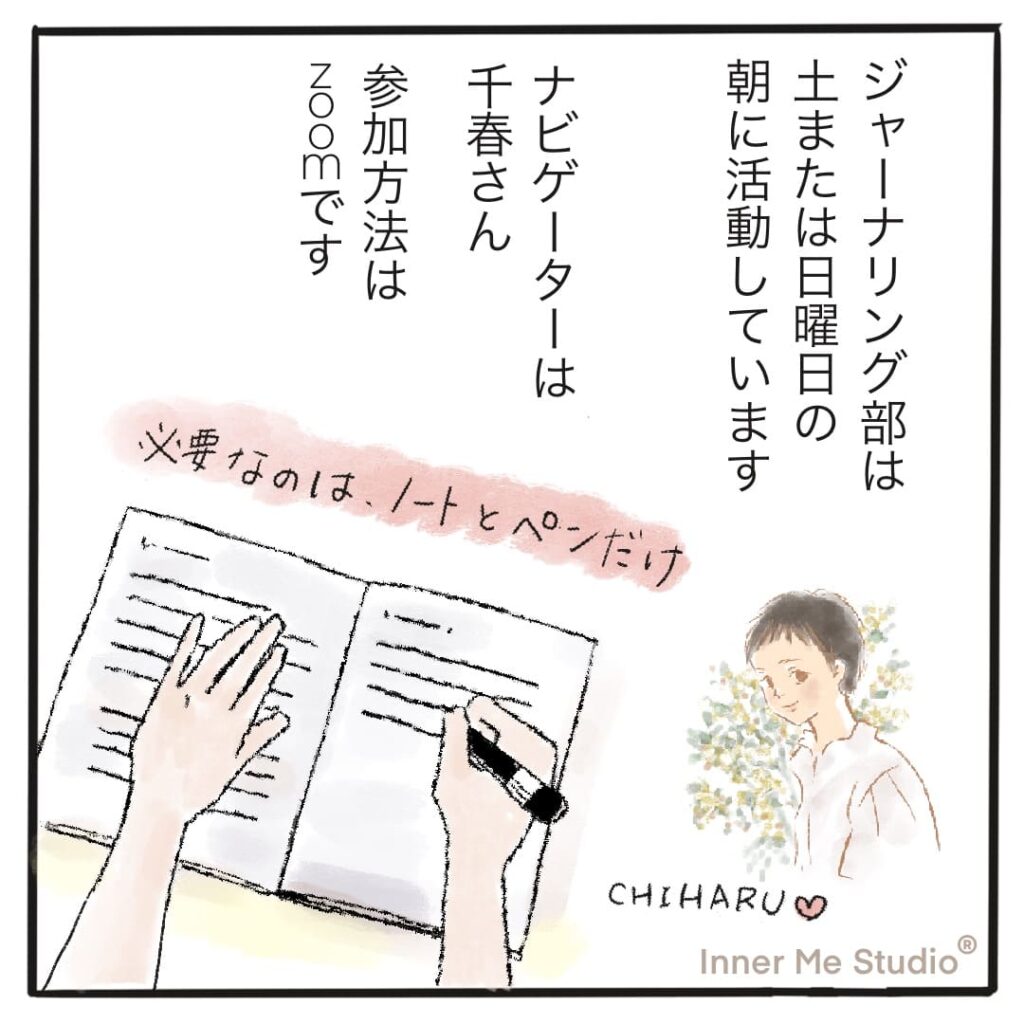 ジャーナリング部は
土または日曜日の
朝に活動しています
ナビゲーターは
千春さん
参加方法は
zoomです
必要なのは、ノートとペンだけ
CHIHARU♡
Inner Me Studio®